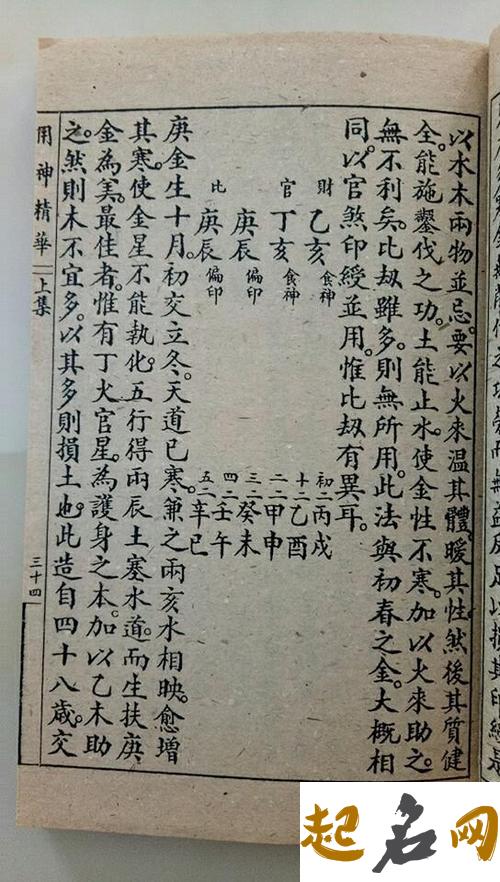 以水木兩物並忌。要以火來溫其體。暖其性。然後其質健
全。能施鑿伐之功。土能止水。使金性不寒。加以火來助之。
無不利矣。比刼雖多。則無所用。此法與初春之金。大概相
同。以官煞印綬並用。惟比刼有異耳。
財 乙亥 食神 初二 丙戌
十二 乙酉
官 丁亥 食神 二二 甲申
庚辰 偏印 三二 癸未
四二 壬午
比 庚辰 偏印 五二 辛巳
庚金生十月。初交立冬。天道已寒。兼之兩亥水相映。愈增
其寒。使金星不能執化。五行得兩辰土塞水道。而生扶庚
金為美。最佳者。惟有丁火官星。為護身之本。加以乙木助
之。然則木不宜多。以其多則損土也。此造自四十八歲。交
用神精華 上集 三十四
起名网